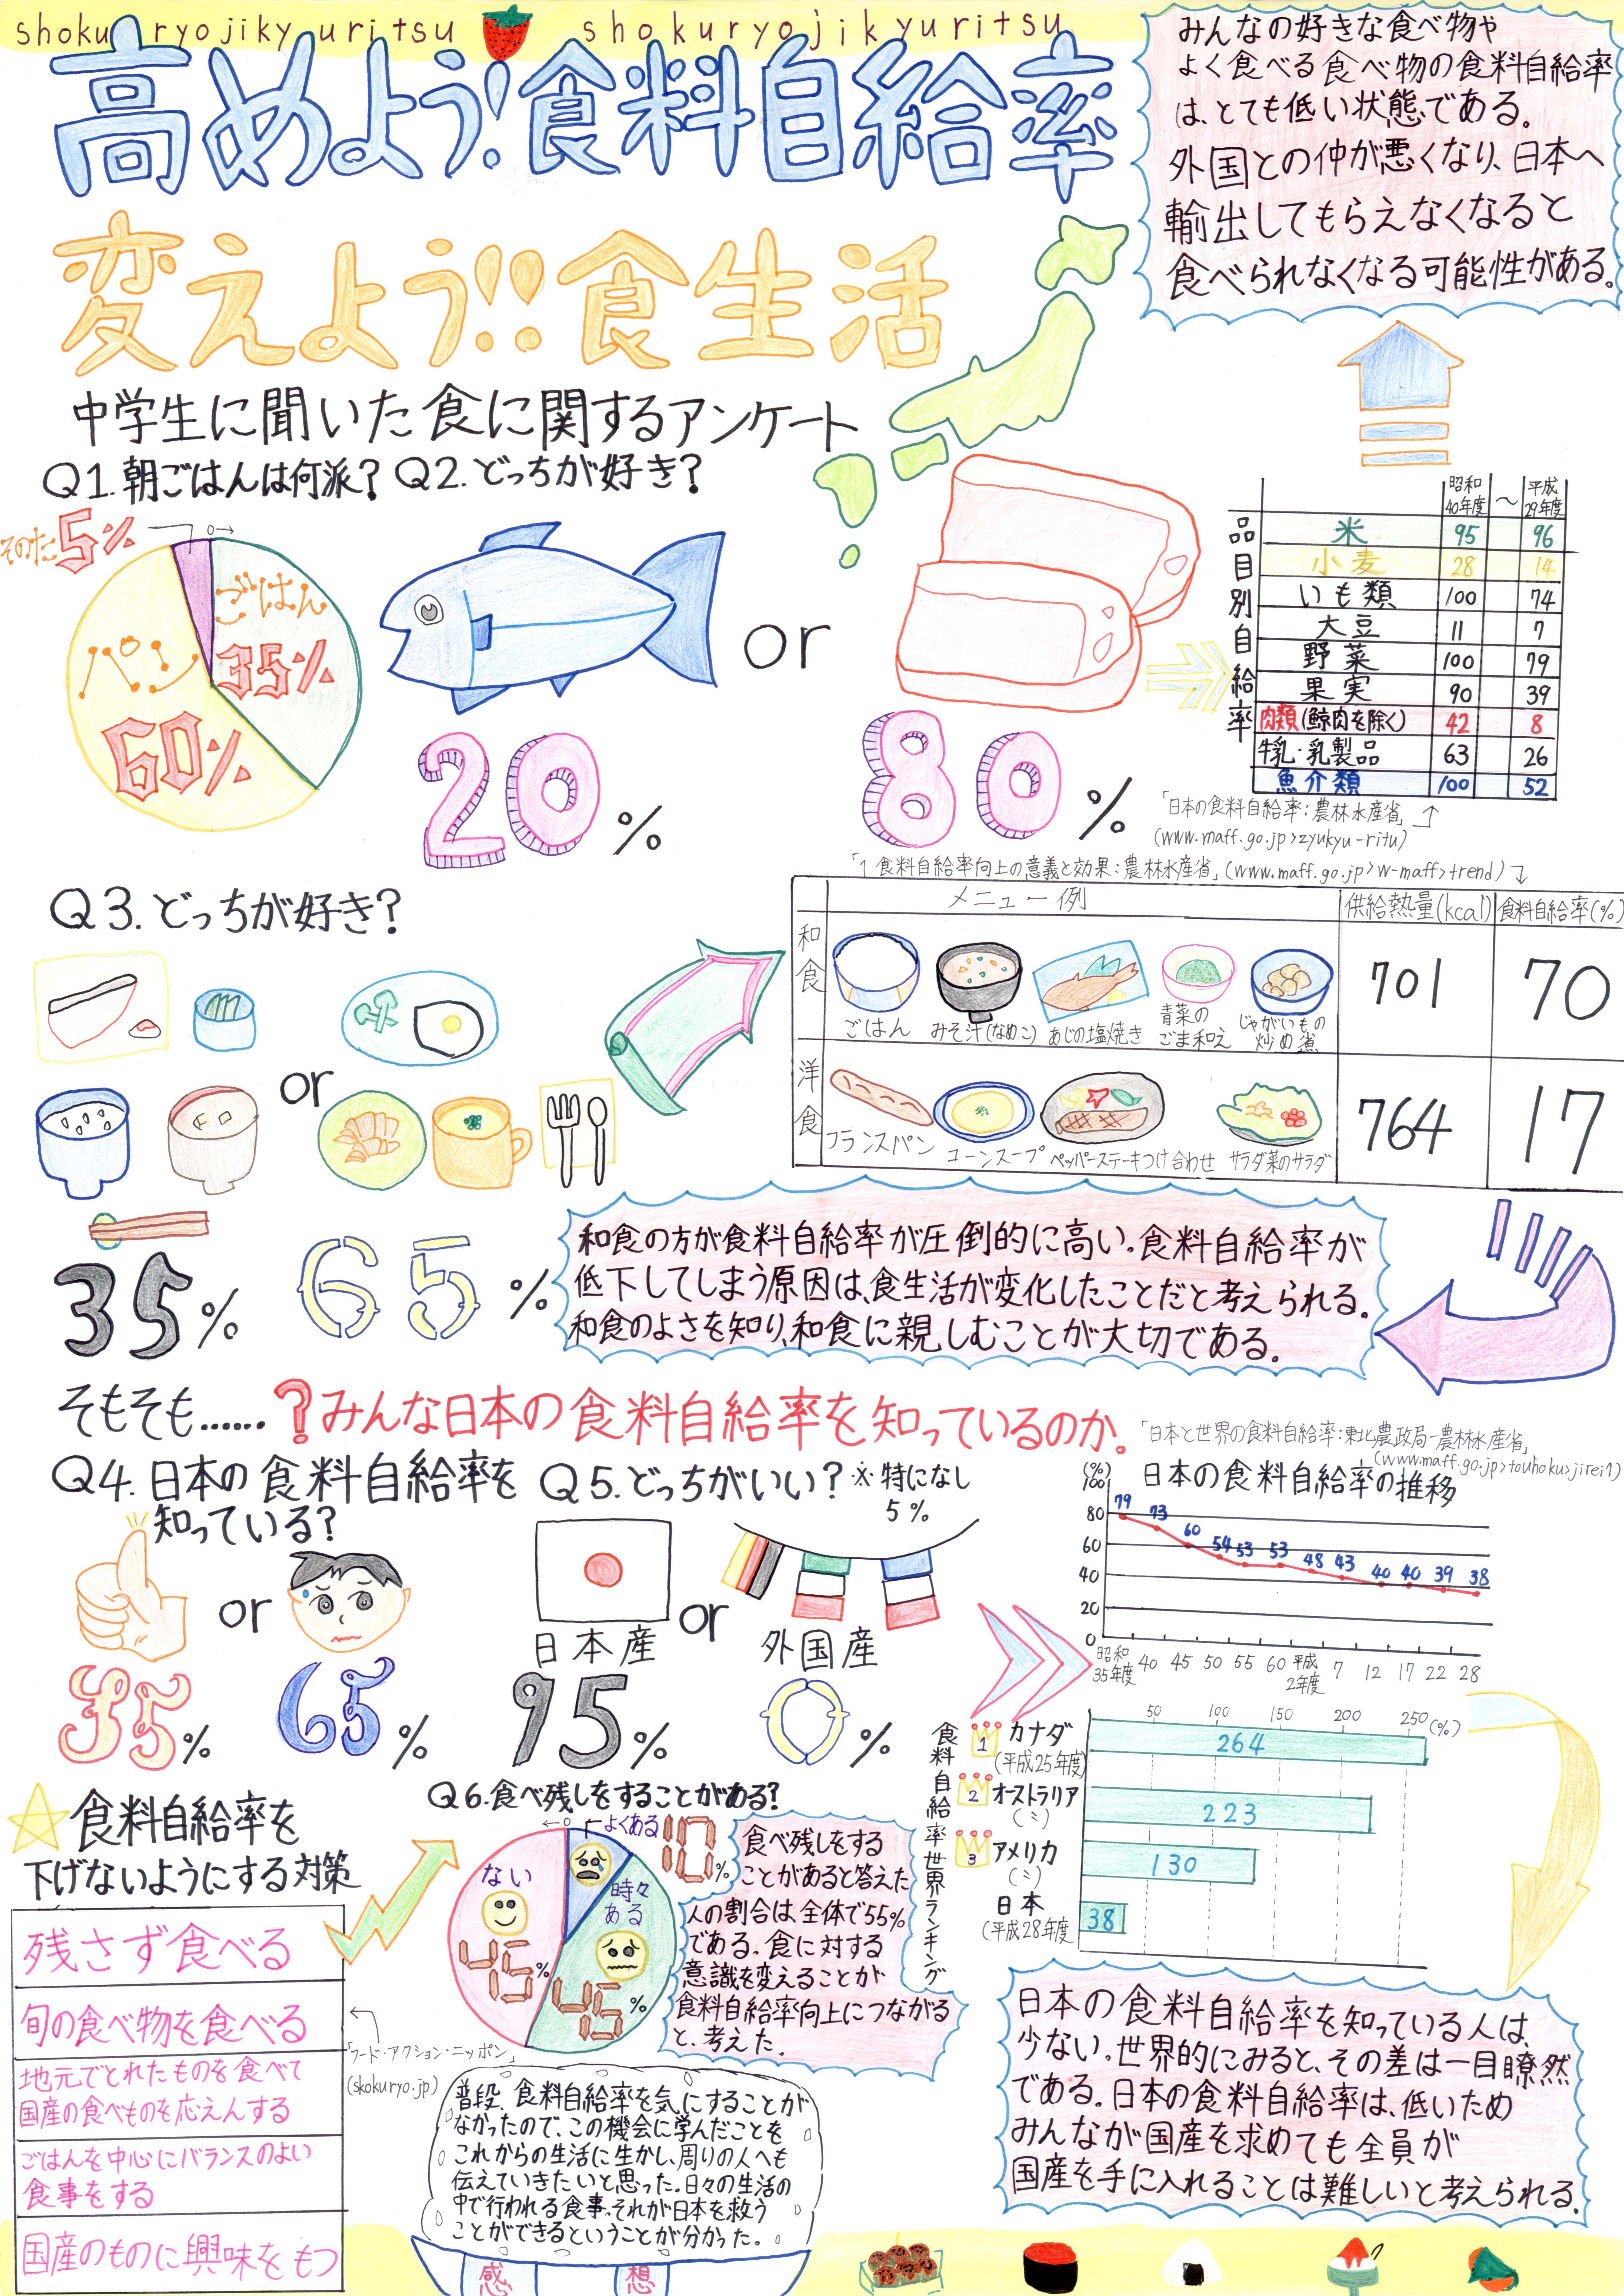 shokuryojikyuritsu shokuryojikyuritsu
高めよう!食料自給率
変えよう!!食生活
みんなの好きな食べ物や
よく食べる食べ物の食料自給率
は、とても低い状態である。
外国との仲が悪くなり、日本へ
輸出してもらえなくなると
食べられなくなる可能性がある。
中学生に聞いた食に関するアンケート
Q1.朝ごはんは何派?
そのた5%
ごはん
35%
パン
60%
Q2.どっちが好き?
or
20%
80%
品目別自給率
昭和40年度 〜 平成29年度
米 95 96
小麦 28 14
いも類 100 74
大豆 11 7
野菜 100 79
果実 90 39
肉類(鯨肉を除く) 42 8
牛乳・乳製品 63 26
魚介類 100 52
「日本の食料自給率:農林水産省」
(www.maff.go.jp>zyukyu-ritu)
「1 食料自給率向上の意義と効果:農林水産省」(www.maff.go.jp>w-maff>trend)
Q3.どっちが好き?
or
35%
65%
メニュー例 供給熱量(kcal) 食料自給率(%)
和食
ごはん みそ汁(なめこ) あじの塩焼き 青菜のごま和え じゃがいもの炒め煮
701 70
洋食
フランスパン コーンスープ ペッパーステーキつけ合わせ サラダ菜のサラダ
764 17
和食の方が食料自給率が圧倒的に高い。食料自給率が
低下してしまう原因は、食生活が変化したことだと考えられる。
和食のよさを知り、和食に親しむことが大切である。
そもそも……?みんな日本の食料自給率を知っているのか。
Q4.日本の食料自給率を
知っている?
or
35%
65%
Q5.どっちがいい?※特になし
5%
or
日本産
95%
外国産
0%
「日本と世界の食料自給率:東北農政局-農林水産省」
(www.maff.go.jp>touhoku>jirei1)
日本の食料自給率の推移
(%)
100
80
60
40
20
0
79 73 60 54 53 53 48 43 40 40 39 38
昭和35年度 40 45 50 55 60 平成2年度 7 12 17 22 28
食料自給率世界ランキング
50 100 150 200 250(%)
1 カナダ
(平成25年度)
264
2 オーストラリア
(〃)
223
3 アメリカ
(〃)
130
日本
(平成28年度
38
Q6.食べ残しをすることがある?
0
よくある 10%
時々
ある
45%
ない
45%
食べ残しをする
ことがあると答えた
人の割合は全体で55%
である。食に対する
意識を変えることが
食料自給率向上につながる
と、考えた。
食料自給率を
下げないようにする対策
残さず食べる
旬の食べ物を食べる
地元でとれたものを食べて
国産の食べものを応えんする
ごはんを中心にバランスのよい
食事をする
国産のものに興味をもつ
「フード・アクション・ニッポン」
(skokuryo.jp)
普段、食料自給率を気にすることが
なかったので、この機会に学んだことを
これからの生活に生かし、周りの人へも
伝えていきたいと思った。日々の生活の
中で行われる食事。それが日本を救う
ことができるということが分かった。
感想
日本の食料自給率を知っている人は、
少ない。世界的にみると、その差は一目瞭然
である。日本の食料自給率は、低いため
みんなが国産を求めても全員が
国産を手に入れることは難しいと考えられる。